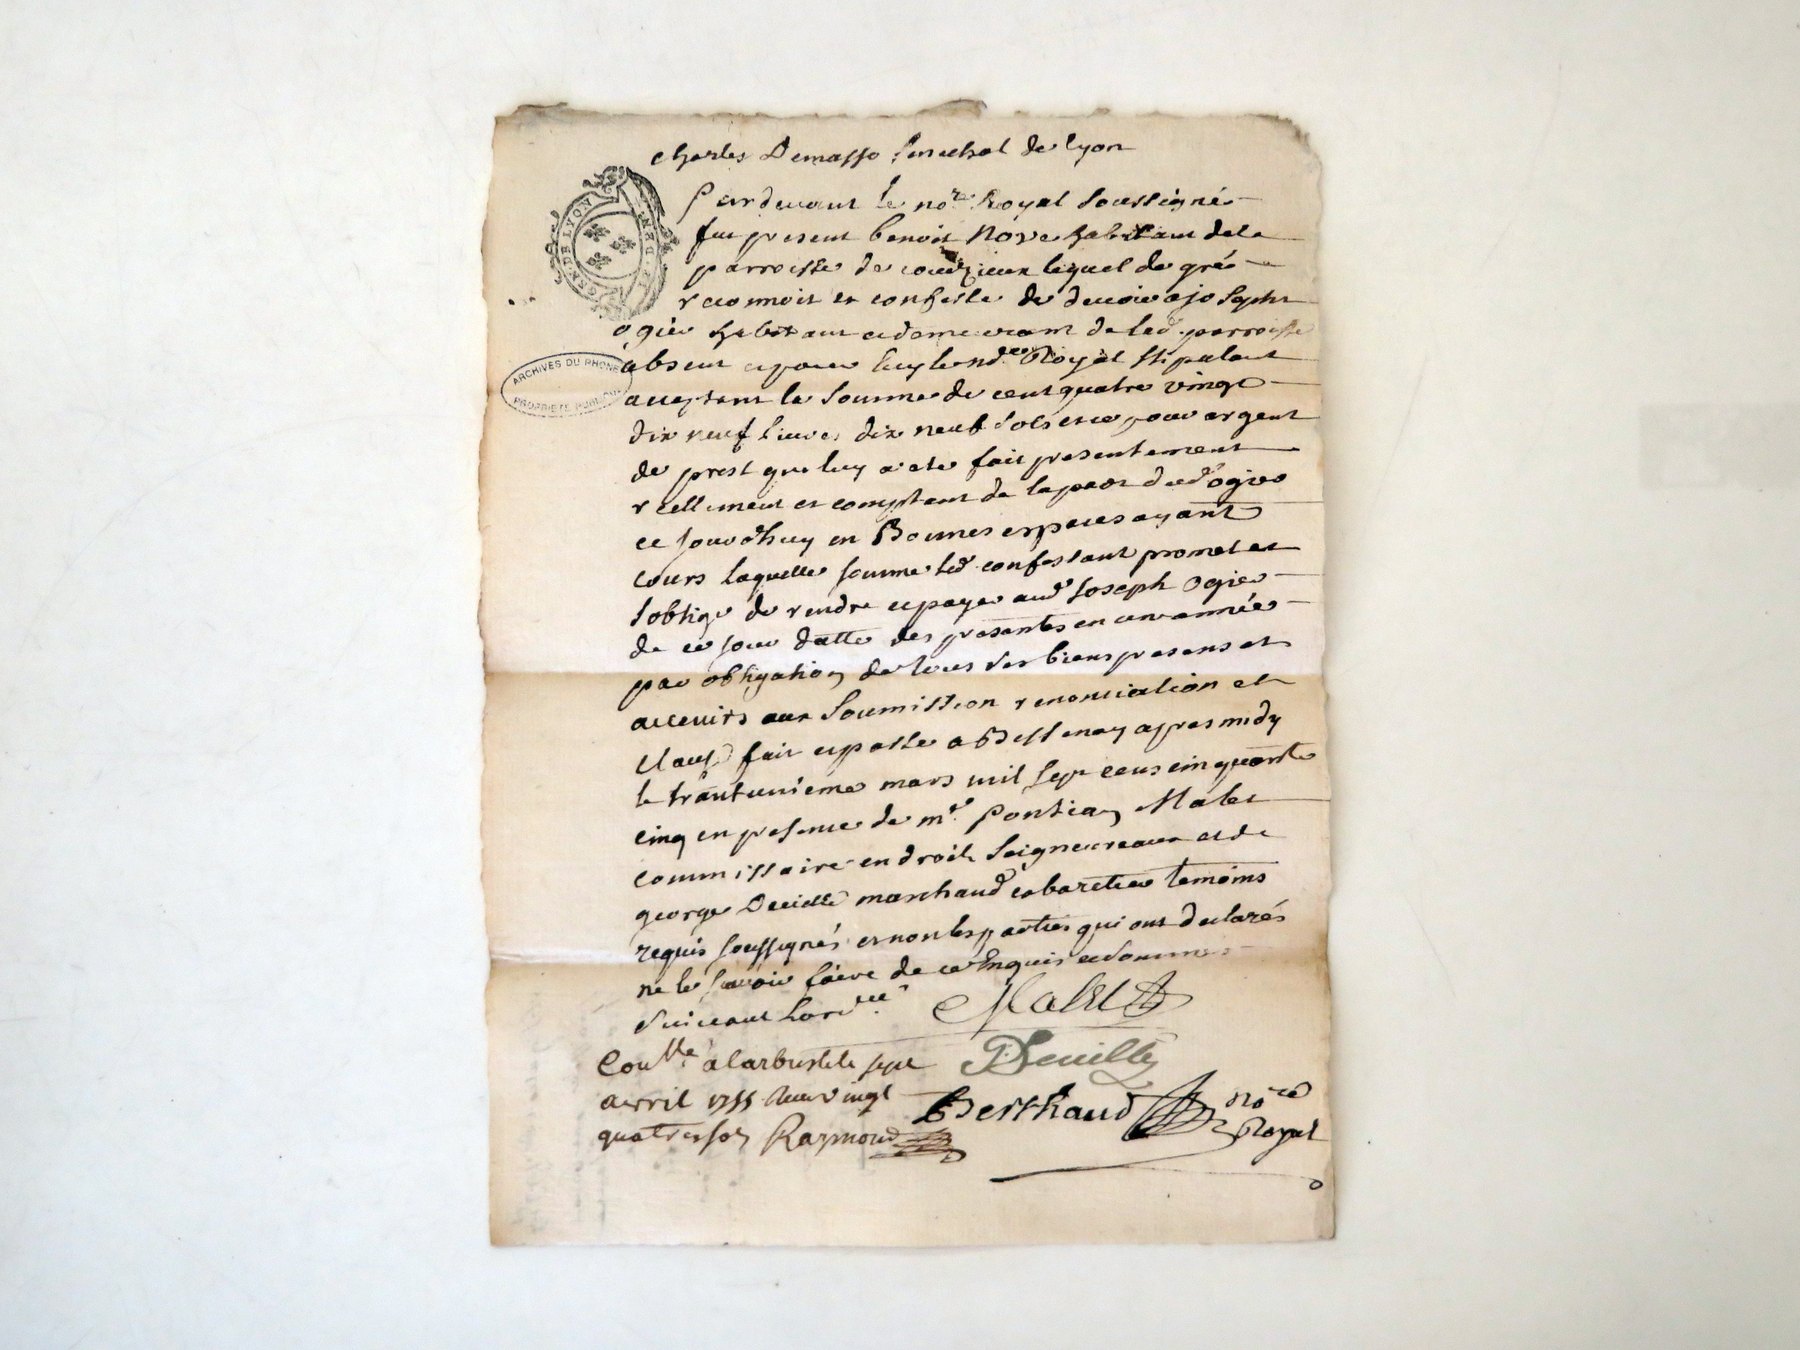 Charles Demasso senechal de lyon
GEN. DE LYON
MED. P.
Pardevant le nore. Royal soussigné
fut present benoit Noye habitant dela
parroisse de courzieux lequel de gré
reconnoit et confesse de devoir a joseph
ogier habitant et demeurant de led. parroisse
absent et pour luy le nd. re Royal stipulant
acceptant la somme de cent quatre vingt
dix neuf livres dix neuf sols et ce pour argent
de prest que luy a ete fait presentement
reellement et comptant de la part dud. ogier
ce jourdhuy en Bonnes espaces ayant
cours laquelle somme led. confessant promet et
soblige de rendre et payer aud. Joseph Ogier
de ce jour datte des presentes en une année
par obligation de tous ses biens presens et
avenirs aux soumission renonciation et
claus. fait et passé a Bessenay apres midy
le trantunieme mars mil sept cens cinquante
cinq en presence de mr. Pontian Malet
commissaire en droits seigneureaux et de
george Deville marchand cabaretier temoins
requis soussignés et non les parties qui ont declarés
ne le savoir faire de ce enquis et sommés
suivant lord.ce
Malet
Deville
Conllé alarbresle le sept
avril 1755 Recu vingt
quatre sols Raymond
Berthaud
no.re
Royal
ARCHIVES DU RHONE
PROPRIETE PUBLIQUE